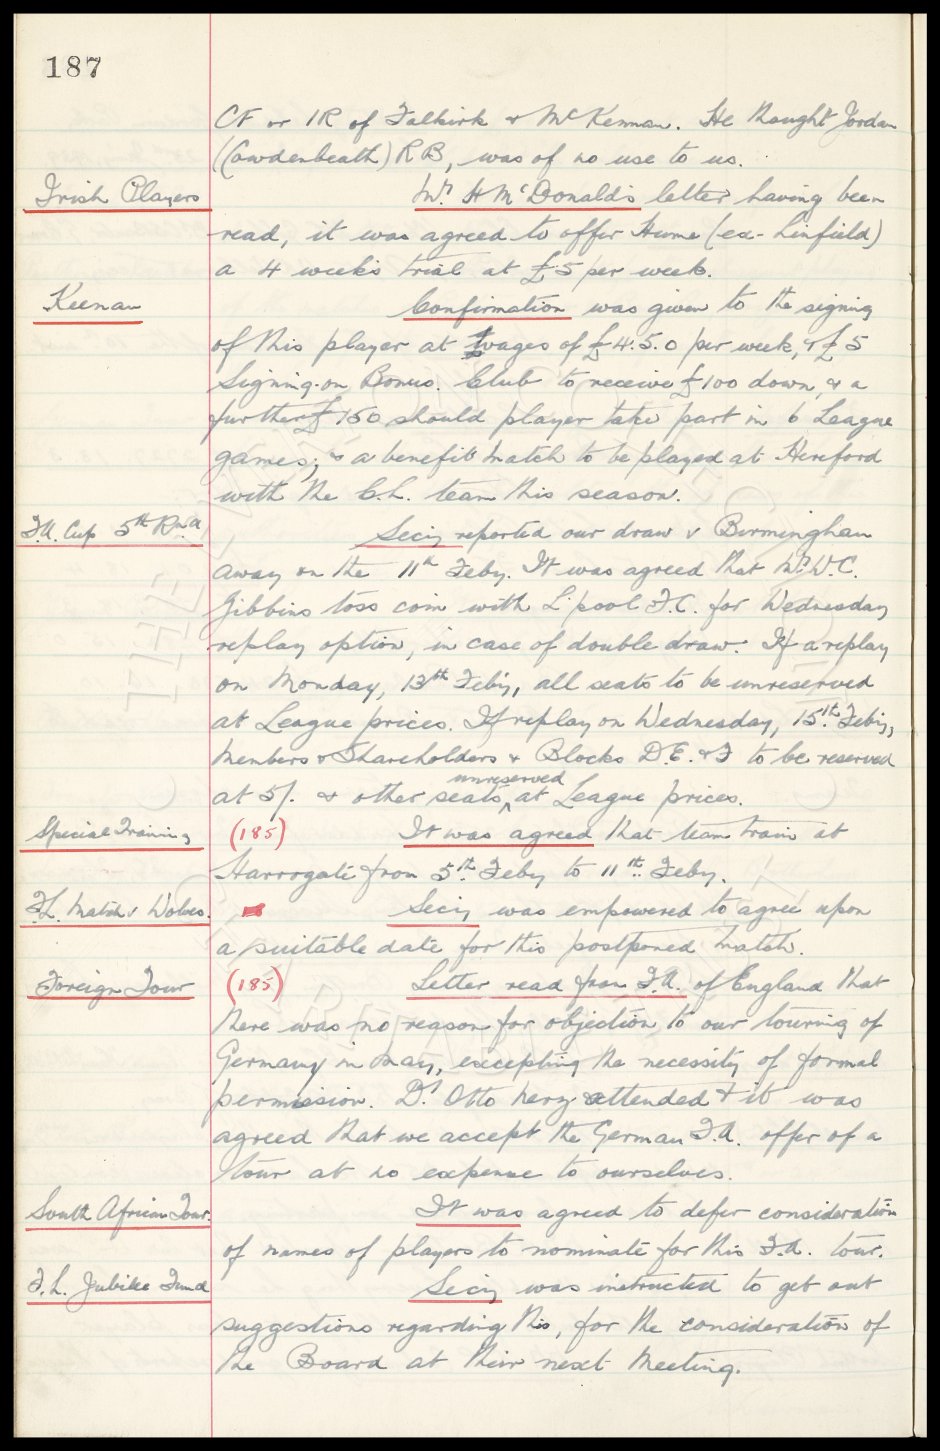 187
CF or IR of Falkirk & McKennan. He thought Jordan
(Cowdenbeath) RB, was of no use to us.
Irish Players
Mr. H McDonald's letter having been
read, it was agreed to offer Hume (ex-Linfield)
a 4 weeks trial at £5 per week.
Keenan
Confirmation was given to the signing
of this player at wages of £4.5.0 per week, & £5
Signing-on Bonus. Club to receive £100 down, & a
further £150 should player take part in 6 League
games; & a benefit match to be played at Hereford
with the C.L. team this season.
F.A. Cup 5th Rnd
Secy reported our draw v Birmingham
away on the 11th Feby. It was agreed that Mr. W.C.
Gibbins toss coin with L'pool F.C. for Wednesday
replay option, in case of double draw. If a replay
on Monday, 13th Feby, all seats to be unreserved
at League prices. If replay on Wednesday, 15th Feby,
Members & Shareholders & Blocks D.E. & F to be reserved
at 5/. & other seats, unreserved at League prices.
Special Training
(185)
It was agreed that team train at
Harrogate from 5th Feby to 11th Feby.
F.L. Match v Wolves.
Secy was empowered to agree upon
a suitable date for this postponed match.
Foreign Tour
(185)
Letter read from F.A. of England that
there was no reason for objection to our touring of
Germany in May, excepting the necessity of formal
permission. Dr. Otto Nerz attended & it was
agreed that we accept the German F.A. offer of a
tour at no expense to ourselves.
South African Tour.
It was agreed to defer consideration
of names of players to nominate for this F.A. tour.
F.L. Jubilee Fund
Secy was instructed to get out
suggestions regarding this, for the consideration of
the Board at their next meeting.